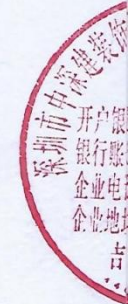 深圳市中深建装饰
开户银
银行账
企业电
企业地
吉